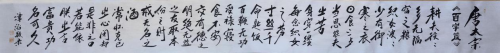 唐太宗
《百字箴》
耕夫役役
多无隔
宿之粮
织女波波
少有御
寒之衣
日食三餐
当思农夫
之苦
命匙饭
百鞭无功
受禄寝
食不安
交有德之
朋绝无益
之友取本
份之财
戒无名之
酒
常怀克己
之心闭却
是非之口
若能依
朕所言
富贵功
名可久